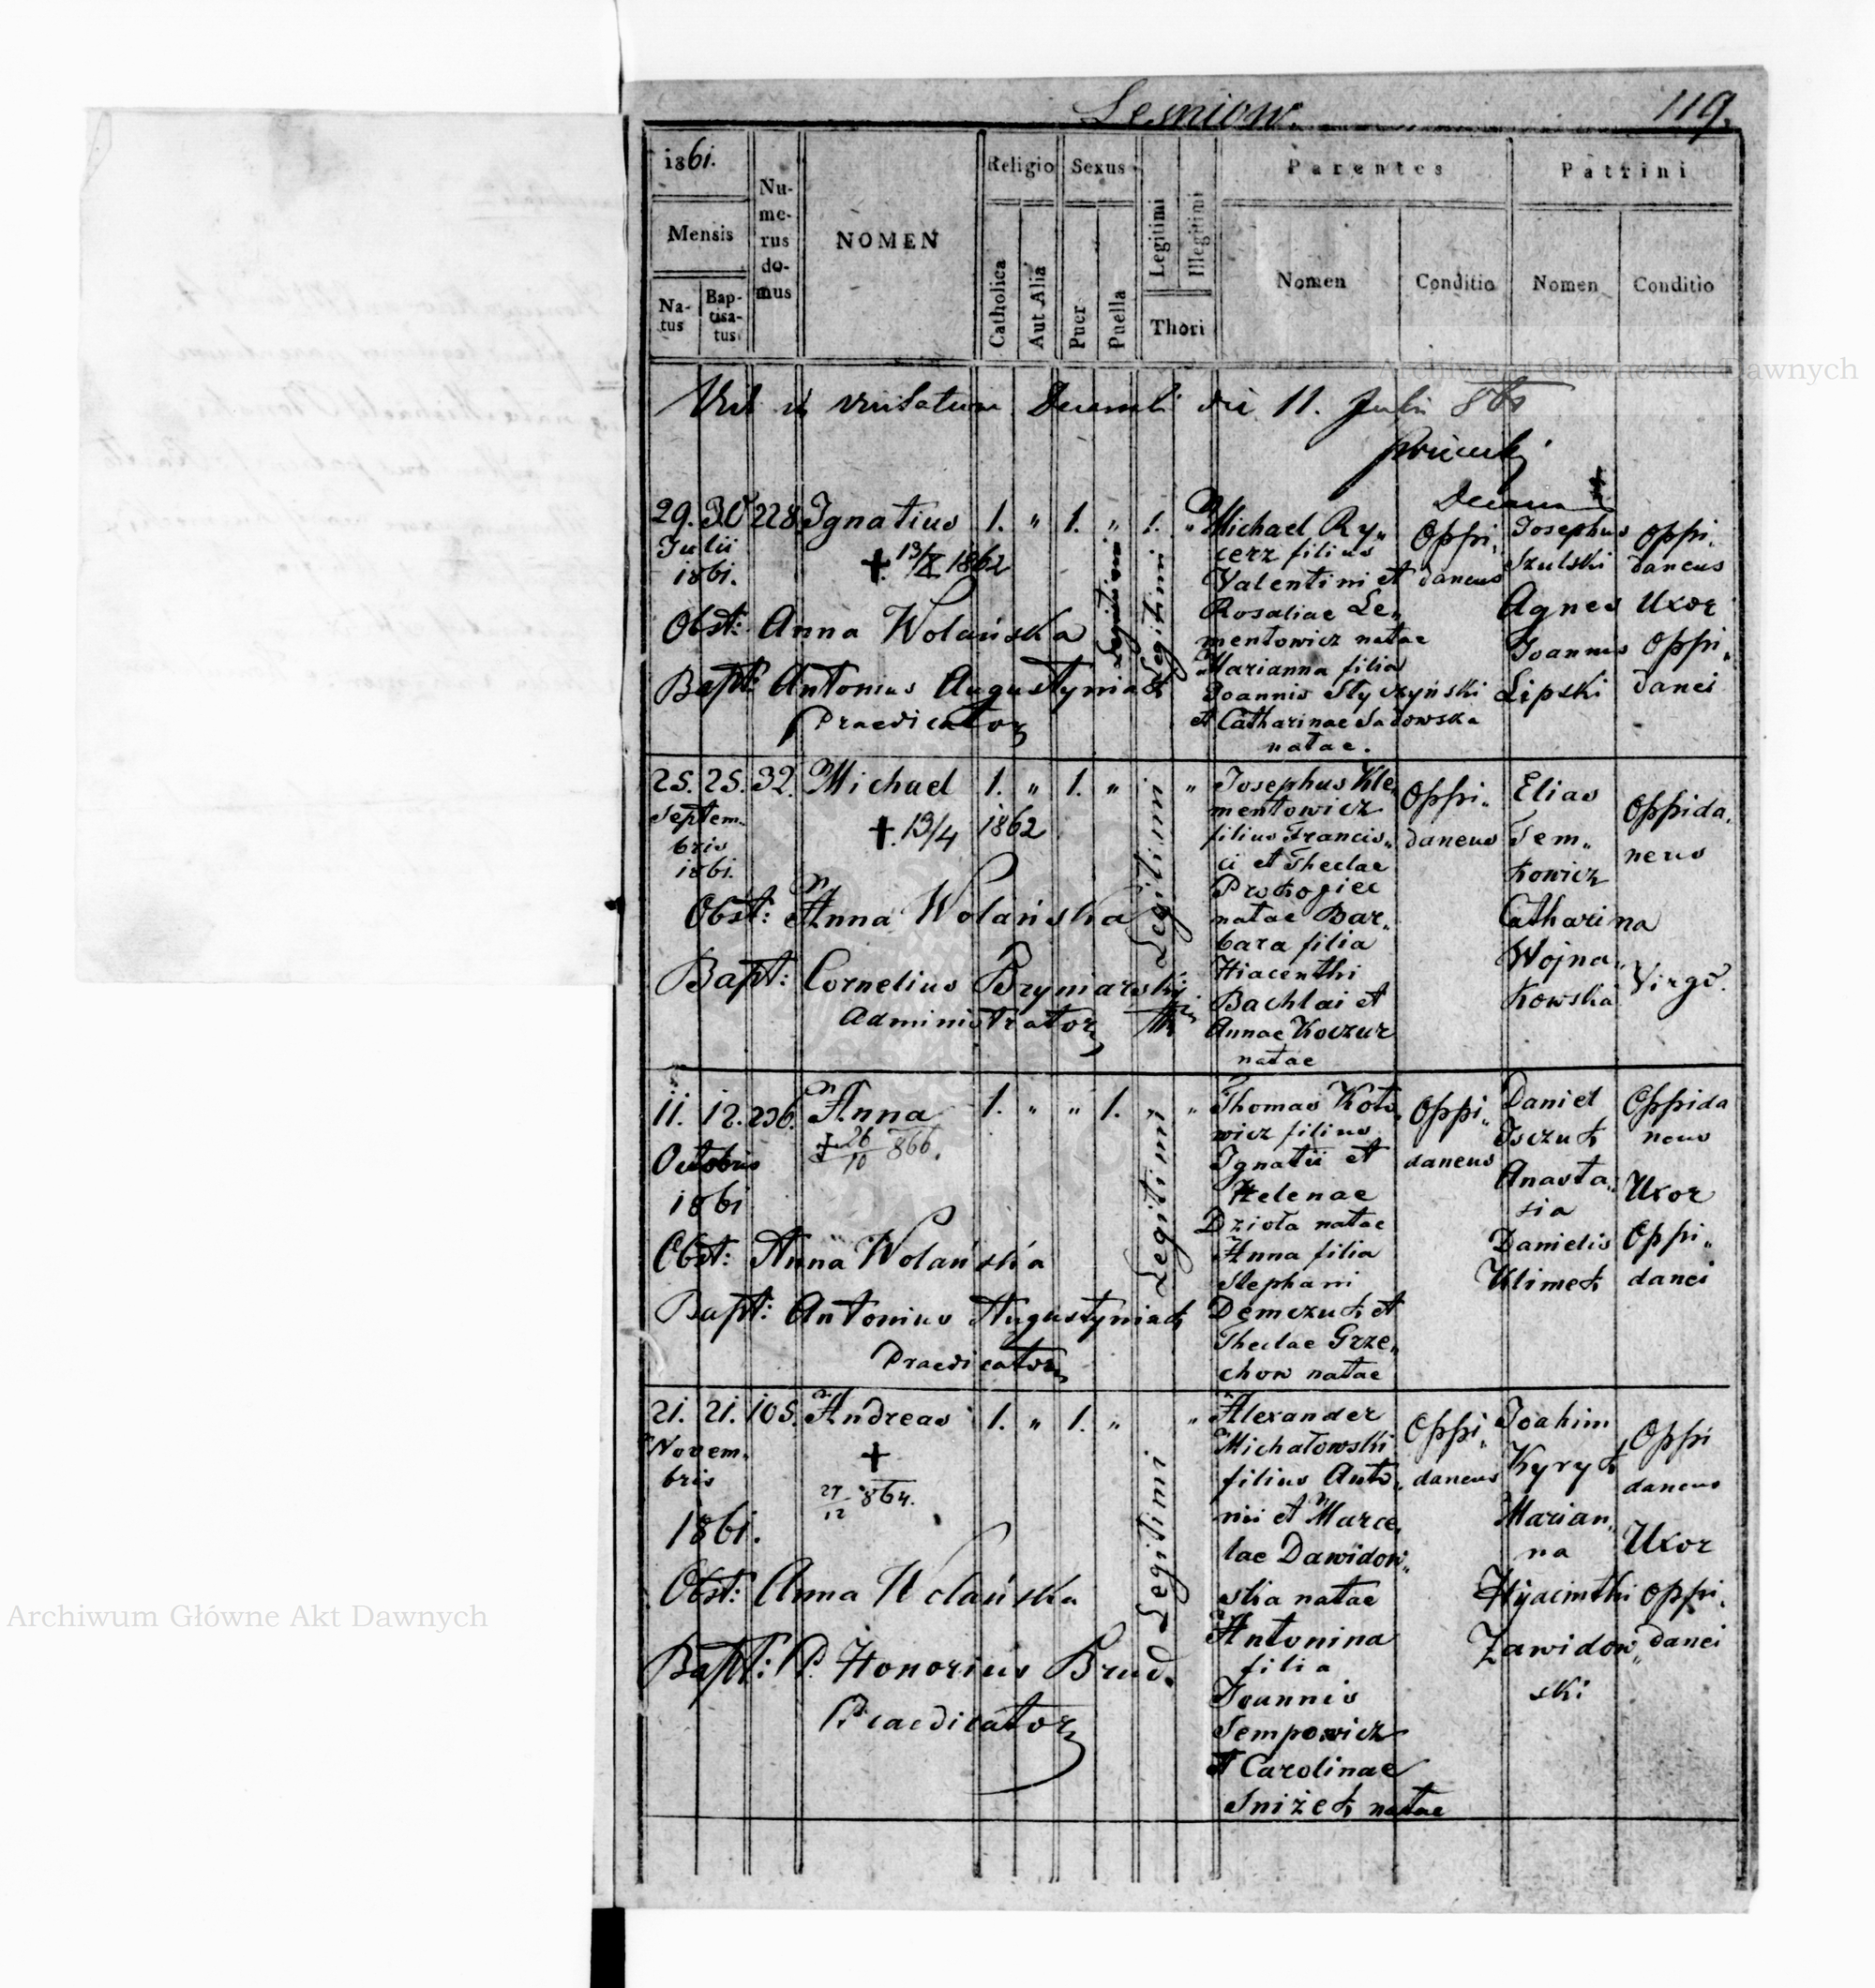 Leśniow.
119.
1861.
Mensis
Na-
tus
Bap-
tisa-
tus
Nu-
me-
rus
do-
mus
NOMEN
Religio
Catholica
Aut Alia
Sexus
Puer
Puella
Legitimi
Illegitimi
Thori
Parentes
Nomen
Conditio
Patrini
Nomen
Conditio
die 11. Julii
29. 30 228. Ignatius 1. " 1. " 1. "
Julii
1861.
+ 13/X 1862
Obst: Anna Wolańska
Bapt: Antonius Augustyniak
Praedicator
Legitimi
Michael Ry„
cerz filius
Valentini et
Rosaliae Le„
mentowicz natae
Marianna filia
Joannis Styczyński
et Catharinae Sadowska
natae.
Oppi„
daneus
Josephus
Szulski
Agnes
Joannis
Lipski
Oppi„
daneus
Uxor
Oppi„
danei
25. 25. 32. Michael 1. " 1. " "
Septem„
bris
1861.
+. 13/4 1862
Obst: Anna Wolańska
Bapt: Cornelius Bryniarski
Administrator
Legitimi
Josephus Kle„
mentowicz
filius Francis„
ci et Theclae
Prokopiec
natae Bar„
bara filia
Hiacenthi
Bachlai et
Annae Koczur
natae
Oppi„
daneus
Elias
Tem„
kowicz
Catharina
Wojna„
kowska
Oppida„
neus
Virgo.
11. 12. 236. Anna 1. " " 1. "
Octobris
1861
+ 26/10 866.
Obst: Anna Wolańska
Bapt: Antonius Augustyniak
Praedicator
Legitimi
Thomas Koto„
wicz filius
Ignatii et
Helenae
Dzioła natae
Anna filia
Stephani
Demczuk et
Theclae Grze„
chow natae
Oppi„
daneus
Daniel
Isczuk
Anasta„
sia
Danielis
Klimek
Oppida
neus
Uxor
Oppi„
danei
21. 21. 105. Andreas 1. " 1. " "
Novem„
bris
1861.
+
27/12 864.
Obst: Anna Wolańska
Bapt: P. Honorius Brud.
Praedicator
Legitimi
Alexander
Michałowski
filius Anto„
nii et Marce„
lae Dawidow„
ska natae
Antonina
filia
Joannis
Sempowicz
et Carolinae
Sniżek natae
Oppi„
daneus
Joahim
Kyryk
Marian„
na
Hyacinthi
Zawidow„
ski
Oppi
daneus
Uxor
Oppi„
danei
Archiwum Główne Akt Dawnych
Archiwum Główne Akt Dawnych